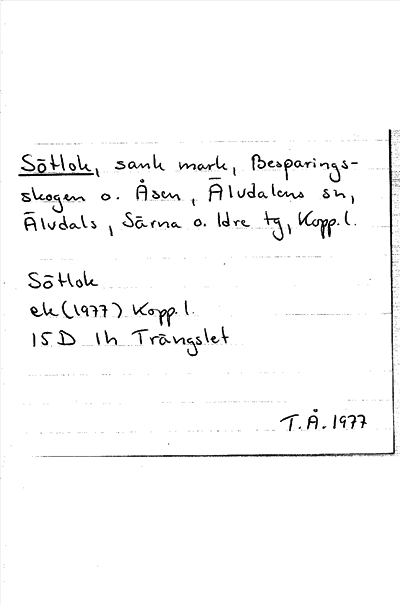 Sötlok, sank mark, Besparings-
skogen o. Åsen, Älvdalens sn,
Älvdals, Särna o. Idre tg, Kopp.l.
Sötlok
ek (1977) Kopp.l.
15 D 1h Trängslet
T.Å. 1977